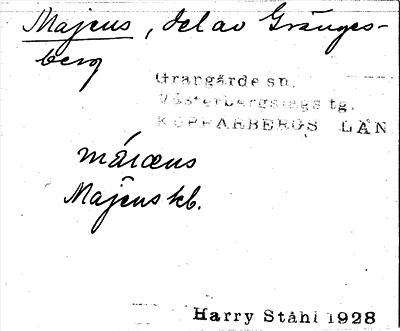 Majens, del av Gränges-
berg
Grangärde sn.
Västerbergslags tg.
KOPPARBERGS LÄN
Majens kb.
Harry Ståhl 1928